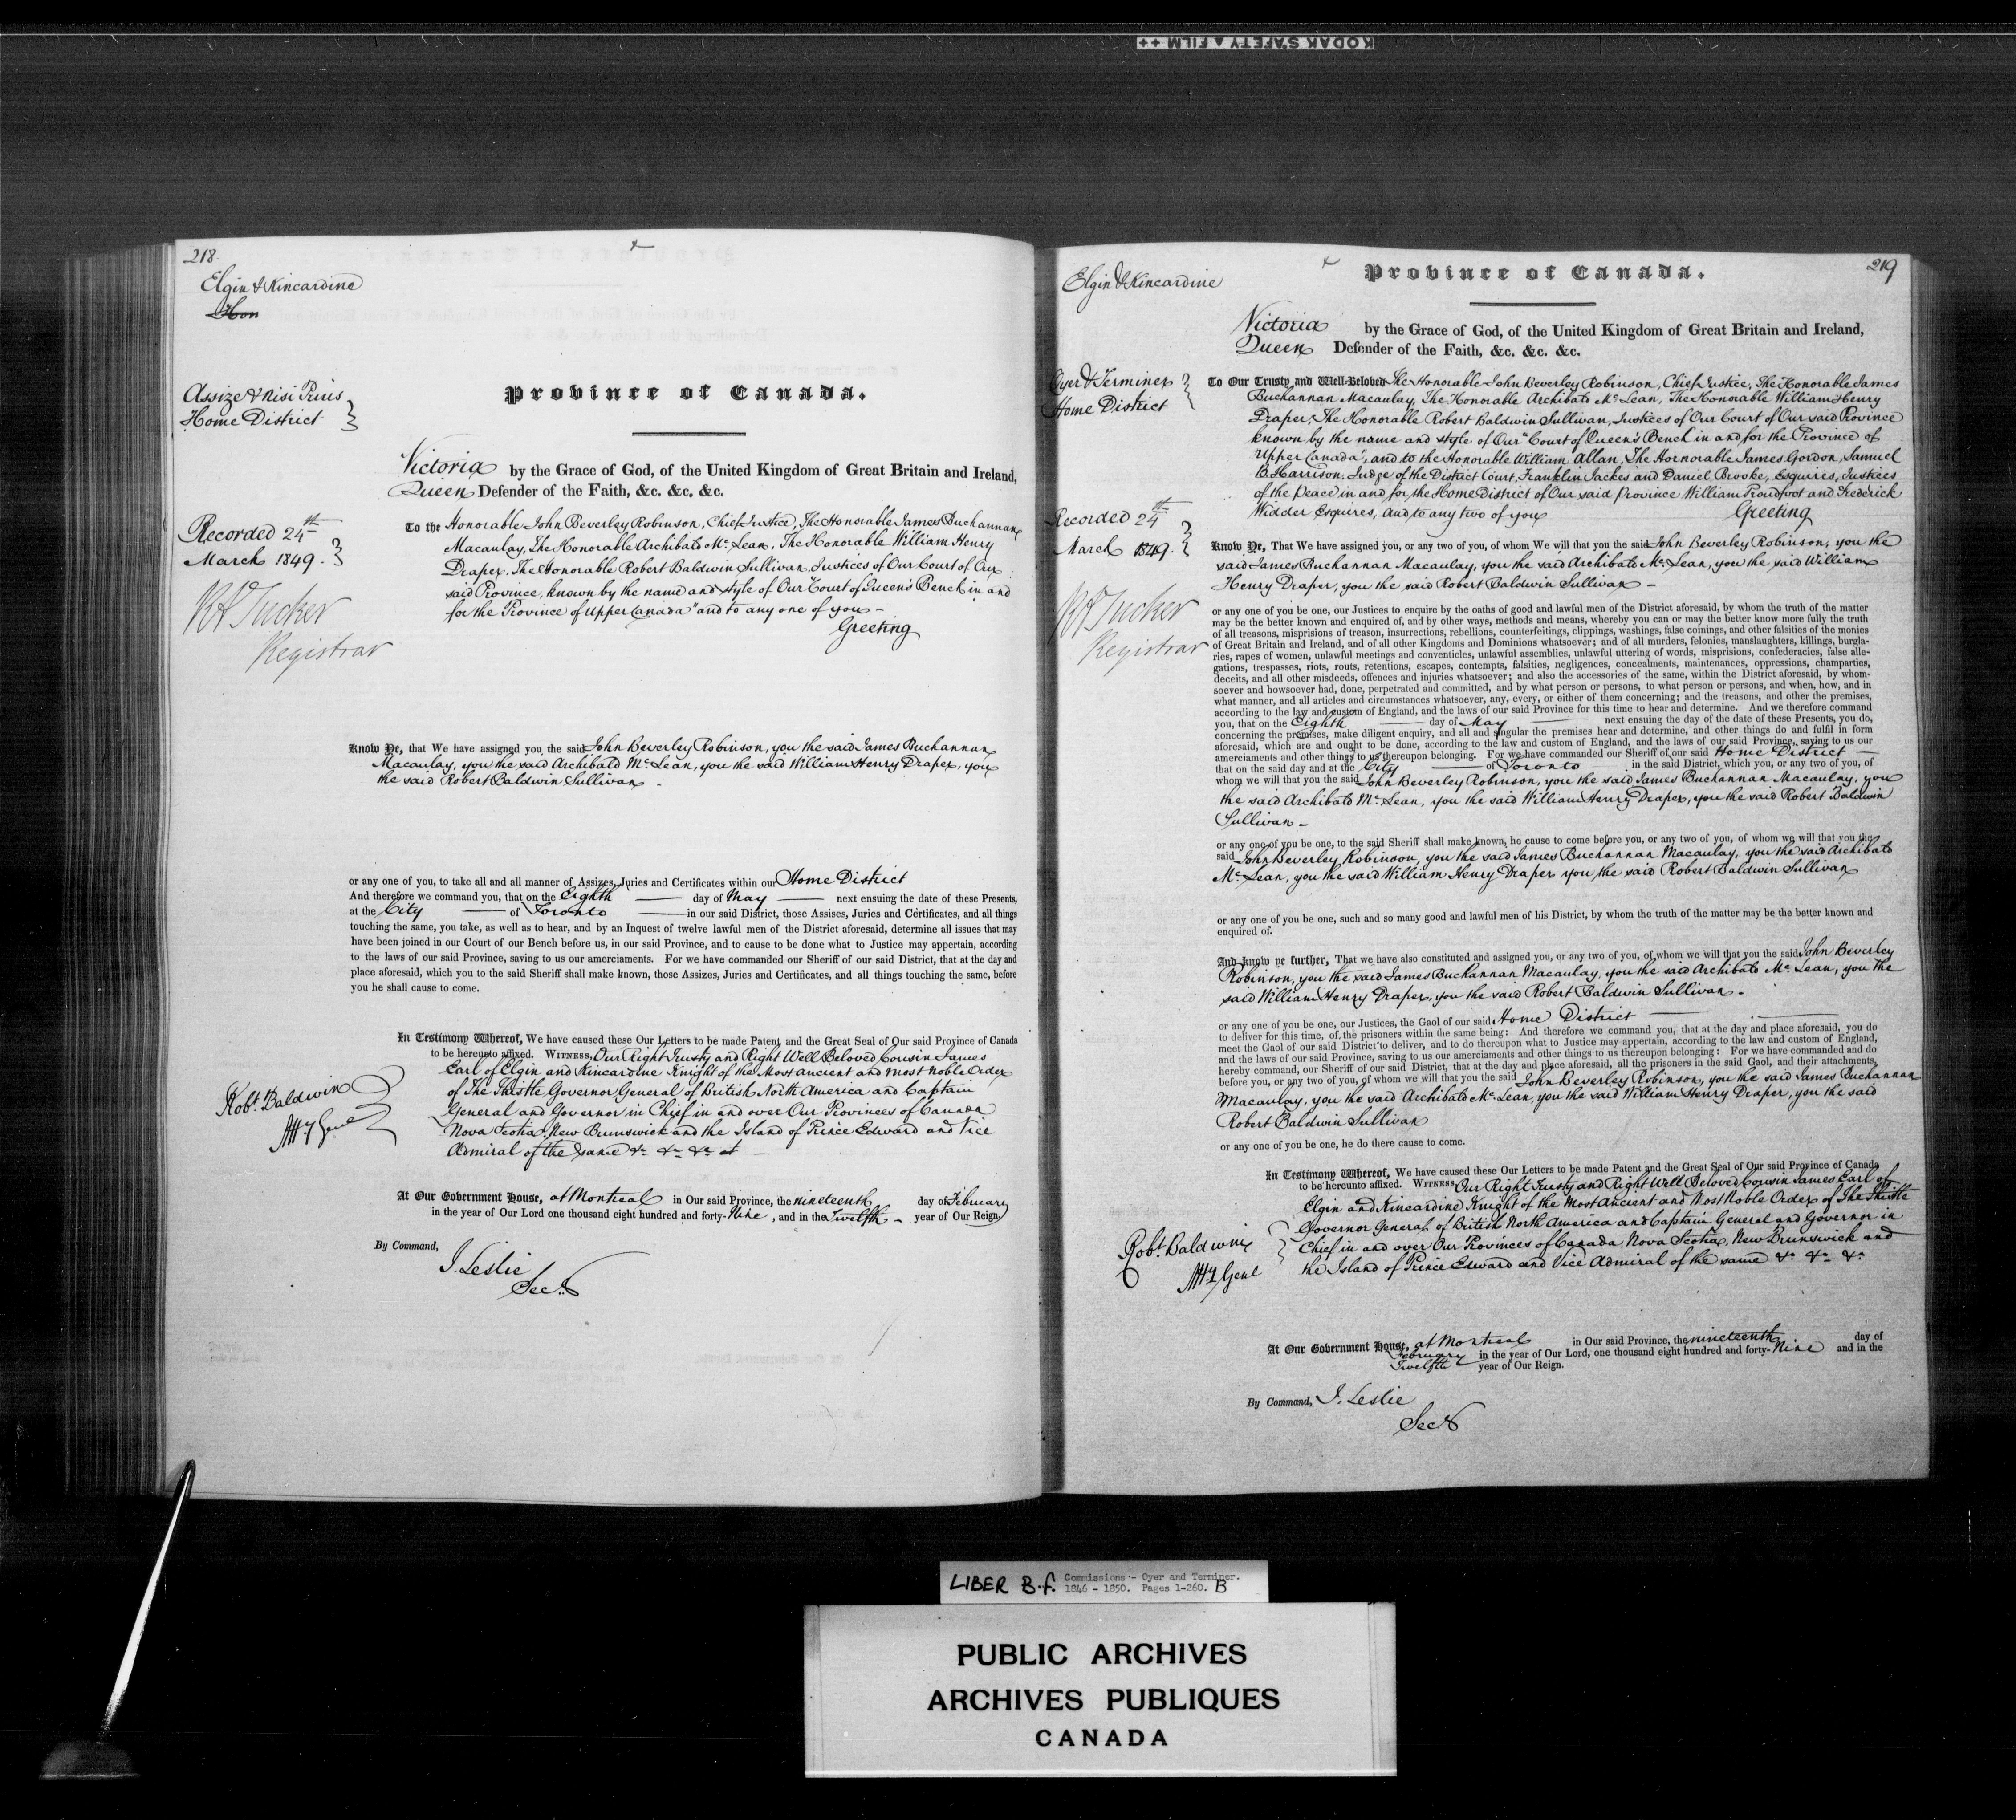 KODAK SAFETY FILM ++
218.
Elgin & Kincardine
Hon
Assize & Nisi Prius
Home District
Province of Canada.
Victoria by the Grace of God, of the United Kingdom of Great Britain and Ireland,
Queen Defender of the Faith, &c. &c. &c.
Recorded 24th
March 1849.
R A Tucker
Registrar
To the Honorable John Beverley Robinson, Chief Justice, The Honorable James Buchannan
Macaulay, The Honorable Archibald Mc Lean, The Honorable William Henry
Draper, The Honorable Robert Baldwin Sullivan, Justices of Our Court of Our
said Province, known by the name and style of Our "Court of Queen's Bench in and
for the Province of Upper Canada" and to any one of you -
Greeting
Know Ye, that We have assigned you the said John Beverley Robinson, you the said James Buchannan
Macaulay, you the said Archibald Mc Lean, you the said William Henry Draper, you
the said Robert Baldwin Sullivan -
or any one of you, to take all and all manner of Assizes, Juries and Certificates within our Home District
And therefore we command you, that on the Eighth day of May next ensuing the date of these Presents,
at the City of Toronto in our said District, those Assises, Juries and Certificates, and all things
touching the same, you take, as well as to hear, and by an Inquest of twelve lawful men of the District aforesaid, determine all issues that may
have been joined in our Court of our Bench before us, in our said Province, and to cause to be done what to Justice may appertain, according
to the laws of our said Province, saving to us our amerciaments. For we have commanded our Sheriff of our said District, that at the day and
place aforesaid, which you to the said Sheriff shall make known, those Assizes, Juries and Certificates, and all things touching the same, before
you he shall cause to come.
In Testimony Whereof, We have caused these Our Letters to be made Patent, and the Great Seal of Our said Province of Canada
to be hereunto affixed. WITNESS, Our Right Trusty and Right Well Beloved Cousin James
Earl of Elgin and Kincardine Knight of the Most Ancient and Most Noble Order
of The Thistle Governor General of British North America and Captain
General and Governor in Chief in and over Our Provinces of Canada
Nova Scotia, New Brunswick and the Island of Prince Edward and Vice
Admiral of the same &c &c &c at
Robt. Baldwin
Atty Genl
At Our Government House, at Montreal in Our said Province, the nineteenth day of February
in the year of Our Lord one thousand eight hundred and forty-Nine, and in the Twelfth - year of Our Reign.
By Command,
J. Leslie
Secy
219
Elgin & Kincardine
Province of Canada.
Victoria by the Grace of God, of the United Kingdom of Great Britain and Ireland,
Queen Defender of the Faith, &c. &c. &c.
Oyer & Terminer
Home District
Recorded 24th
March 1849.
R A Tucker
Registrar
To Our Trusty and Well-Beloved The Honorable John Beverley Robinson, Chief Justice, The Honorable James
Buchannan Macaulay, The Honorable Archibald Mc Lean, The Honorable William Henry
Draper, The Honorable Robert Baldwin Sullivan, Justices of Our Court of Our said Province
known by the name and style of Our "Court of Queen's Bench in and for the Province of
Upper Canada", and to the Honorable William Allan, The Honorable James Gordon, Samuel
B. Harrison, Judge of the District Court, Franklin Jackes and Daniel Brooke, Esquires, Justices
of the Peace in and for the Home District of Our said Province William Proudfoot and Frederick
Widder Esquires, and to any two of you Greeting
Know Ye, That We have assigned you, or any two of you, of whom We will that you the said John Beverley Robinson, you the
said James Buchannan Macaulay, you the said Archibald Mc Lean, you the said William
Henry Draper, you the said Robert Baldwin Sullivan -
or any one of you be one, our Justices to enquire by the oaths of good and lawful men of the District aforesaid, by whom the truth of the matter
may be the better known and enquired of, and by other ways, methods and means, whereby you can or may the better know more fully the truth
of all treasons, misprisions of treason, insurrections, rebellions, counterfeitings, clippings, washings, false coinings, and other falsities of the monies
of Great Britain and Ireland, and of all other Kingdoms and Dominions whatsoever; and of all murders, felonies, manslaughters, killings, burgla-
ries, rapes of women, unlawful meetings and conventicles, unlawful assemblies, unlawful uttering of words, misprisions, confederacies, false alle-
gations, trespasses, riots, routs, retentions, escapes, contempts, falsities, negligences, concealments, maintenances, oppressions, champarties,
deceits, and all other misdeeds, offences and injuries whatsoever; and also the accessories of the same, within the District aforesaid, by whom-
soever and howsoever had, done, perpetrated and committed, and by what person or persons, to what person or persons, and when, how, and in
what manner, and all articles and circumstances whatsoever, any, every, or either of them concerning; and the treasons, and other the premises,
according to the law and custom of England, and the laws of our said Province for this time to hear and determine. And we therefore command
you, that on the Eighth day of May next ensuing the day of the date of these Presents, you do,
concerning the premises, make diligent enquiry, and all and singular the premises hear and determine, and other things do and fulfil in form
aforesaid, which are and ought to be done, according to the law and custom of England, and the laws of our said Province, saying to us our
amerciaments and other things to us thereupon belonging. For we have commanded our Sheriff of our said Home District
that on the said day and at the City of Toronto in the said District, which you, or any two of you, of
whom we will that you the said John Beverley Robinson, you the said James Buchannan Macaulay, you
the said Archibald Mc Lean, you the said William Henry Draper, you the said Robert Baldwin
Sullivan -
or any one of you be one, to the said Sheriff shall make known, he cause to come before you, or any two of you, of whom we will that you the
said John Beverley Robinson, you the said James Buchannan Macaulay, you the said Archibald
Mc Lean, you the said William Henry Draper you the said Robert Baldwin Sullivan
or any one of you be one, such and so many good and lawful men of his District, by whom the truth of the matter may be the better known and
enquired of.
And know ye further, That we have also constituted and assigned you, or any two of you, of whom we will that you the said John Beverley
Robinson, you the said James Buchannan Macaulay, you the said Archibald Mc Lean, you the
said William Henry Draper, you the said Robert Baldwin Sullivan -
or any one of you be one, our Justices, the Gaol of our said Home District
to deliver for this time, of the prisoners within the same being: And therefore we command you, that at the day and place aforesaid, you do
meet the Gaol of our said District to deliver, and to do thereupon what to Justice may appertain, according to the law and custom of England,
and the laws of our said Province, saving to us our amerciaments and other things to us thereupon belonging: For we have commanded and do
hereby command, our Sheriff of our said District, that at the day and place aforesaid, all the prisoners in the said Gaol, and their attachments,
before you, or any two of you, of whom we will that you the said John Beverley Robinson, you the said James Buchannan
Macaulay, you the said Archibald Mc Lean, you the said William Henry Draper, you the said
Robert Baldwin Sullivan
or any one of you be one, he do there cause to come.
In Testimony Whereof, We have caused these Our Letters to be made Patent and the Great Seal of Our said Province of Canada
to be hereunto affixed. WITNESS, Our Right Trusty and Right Well Beloved Cousin James Earl of
Elgin and Kincardine Knight of the Most Ancient and Most Noble Order of The Thistle
Governor General of British North America and Captain General and Governor in
Chief in and over Our Provinces of Canada, Nova Scotia, New Brunswick and
the Island of Prince Edward and Vice Admiral of the same &c &c &c
Robt. Baldwin
Atty Genl
At Our Government House, at Montreal in Our said Province, the nineteenth day of
February in the year of Our Lord, one thousand eight hundred and forty-Nine and in the
Twelfth year of Our Reign.
By Command, J. Leslie
Secy
LIBER B.F. Commissions - Oyer and Terminer.
1846 - 1850. Pages 1-260. B
PUBLIC ARCHIVES
ARCHIVES PUBLIQUES
CANADA